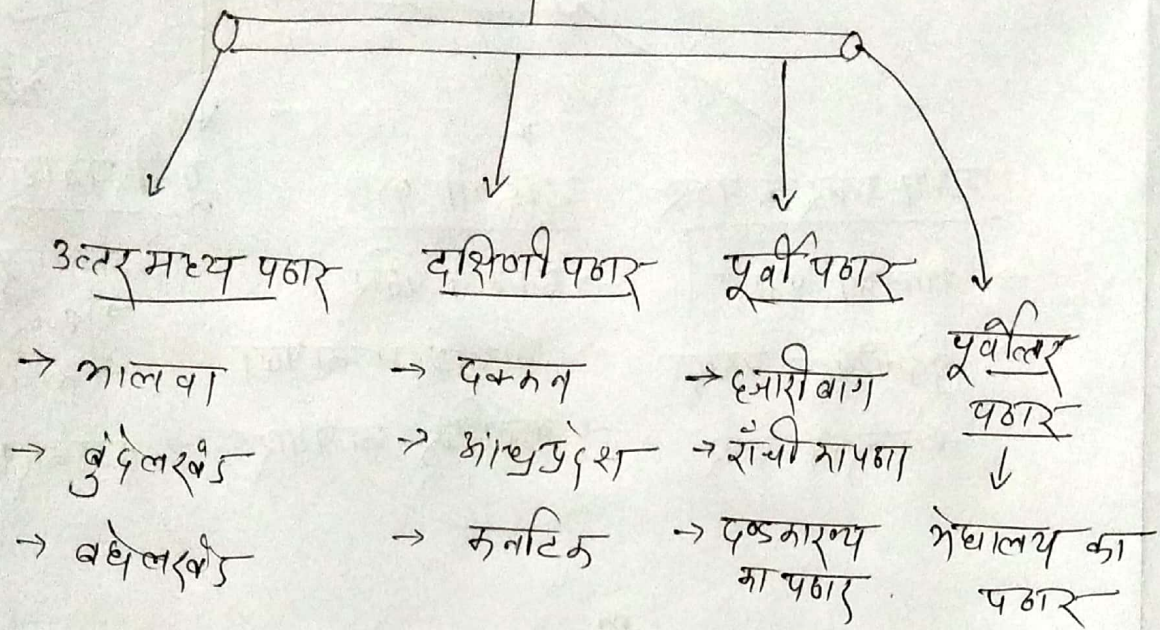 उत्तर मध्य पठार
→ मालवा
→ बुंदेलखंड
→ बघेलखंड
दक्षिणी पठार
→ दक्कन
→ आंध्रप्रदेश
→ कर्नाटक
पूर्वी पठार
→ हजारीबाग
→ राँची का पठार
→ दण्डकारण्य
का पठार
पूर्वोत्तर
पठार
मेघालय का
पठार